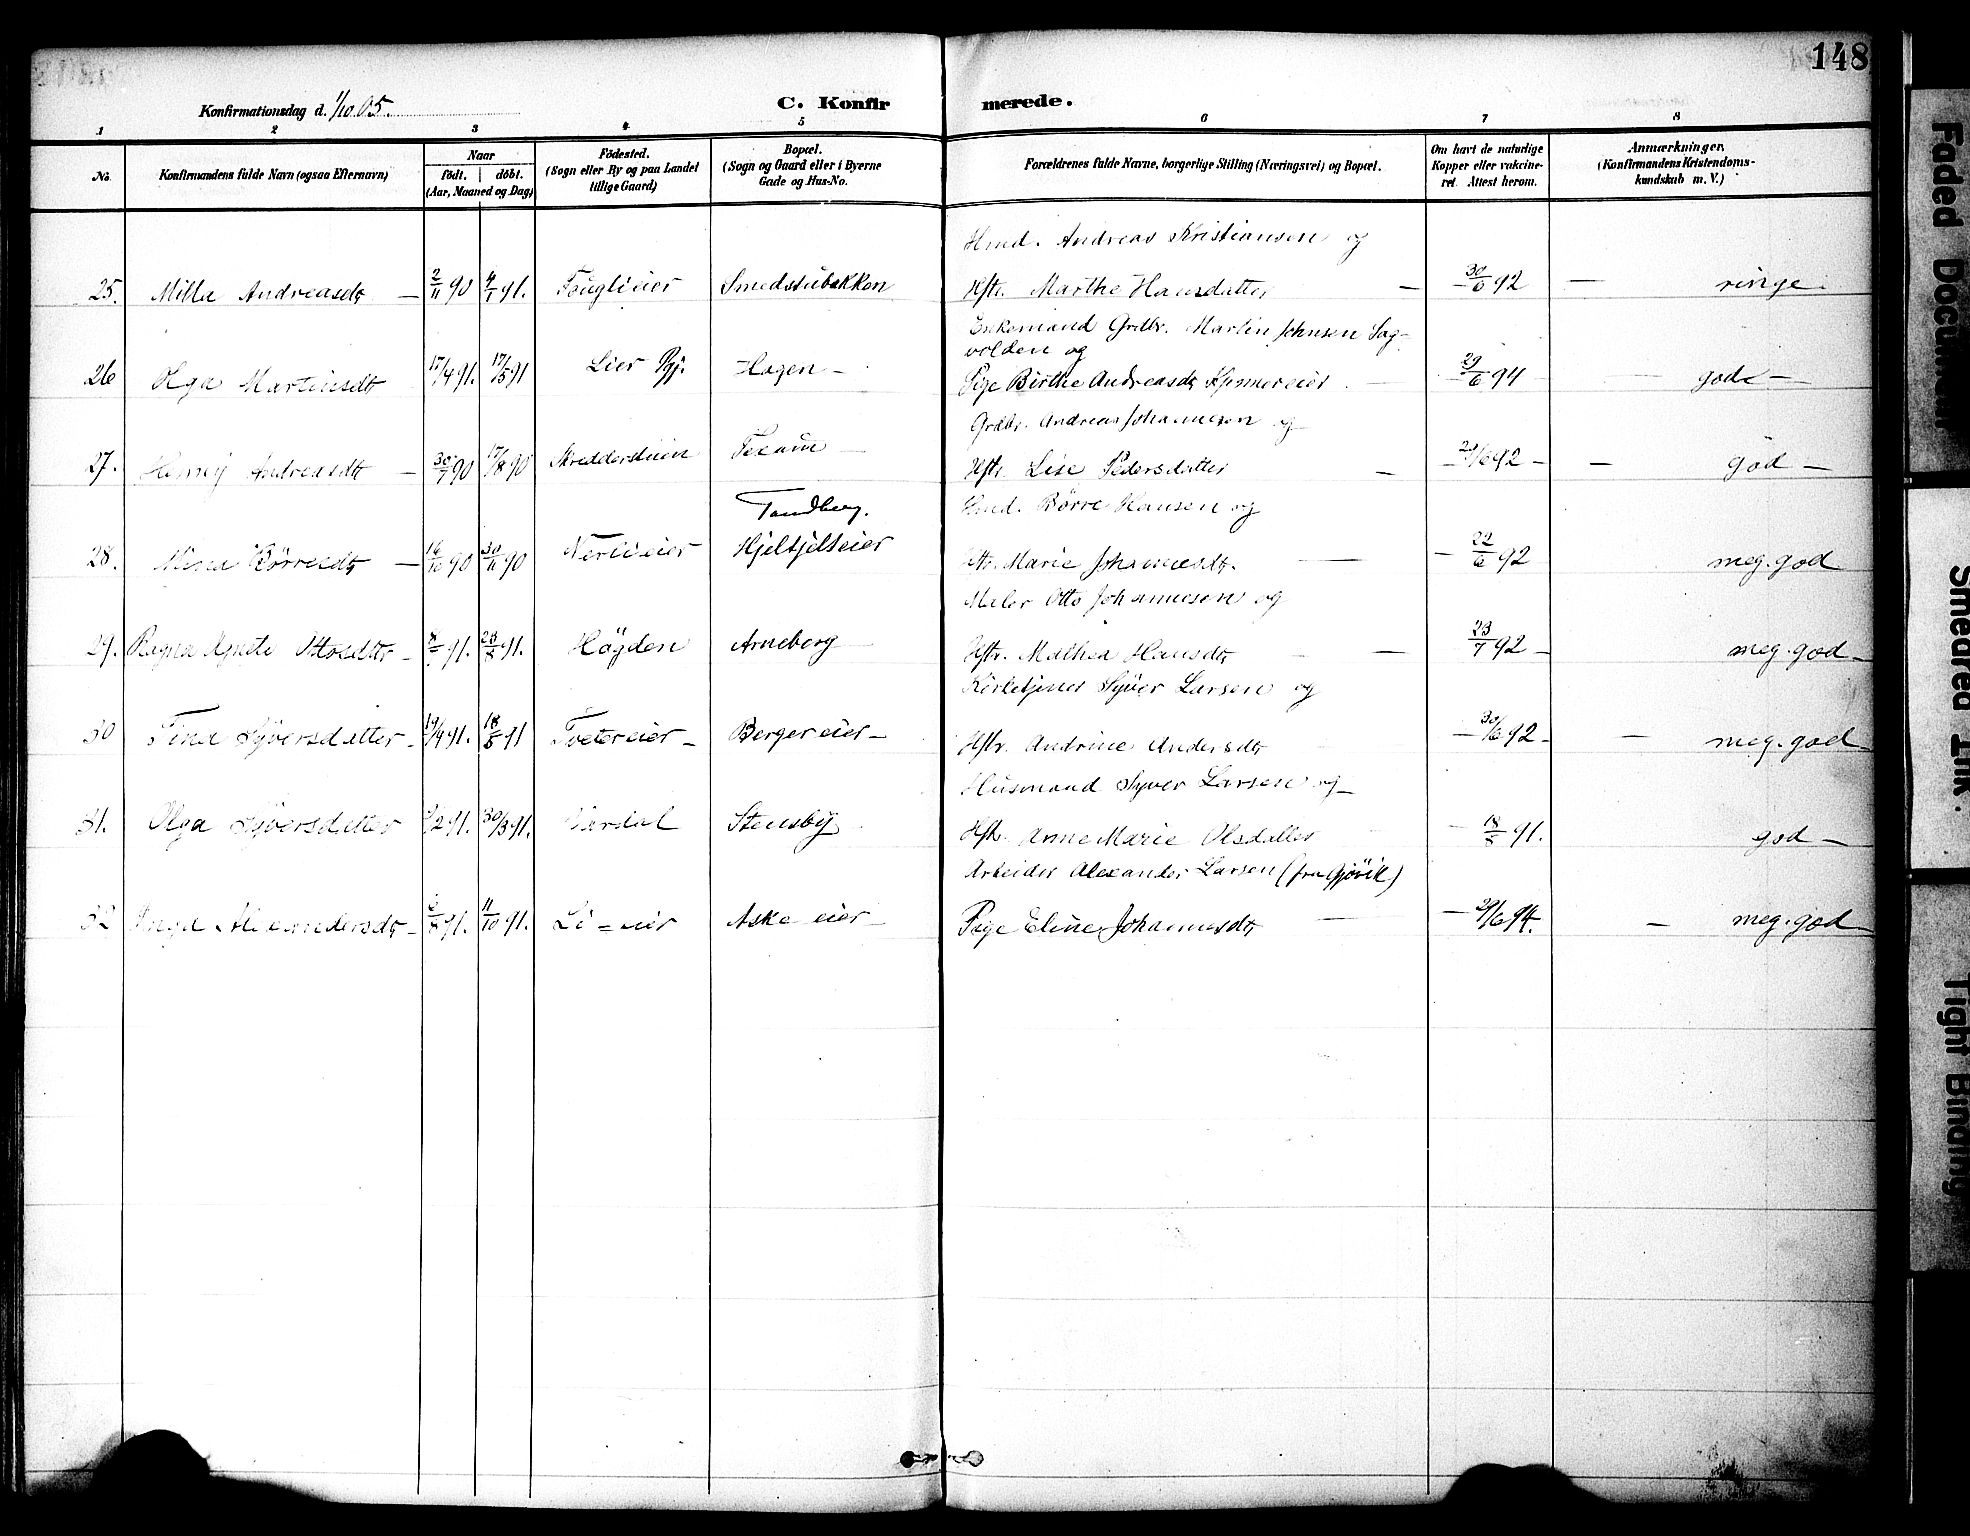 148
Konfirmationsdag d. 1/10 05.
C. Konfirmerede.
1 2 3 4 5 6 7 8
No.
Konfirmandens fulde Navn (ogsaa Efternavn)
Naar
født. døbt.
(Aar, Maaned og Dag)
Födested.
(Sogn eller By og paa Landet
tillige Gaard)
Bopæl.
(Sogn og Gaard eller i Byerne
Gade og Hus-No.
Forældrenes fulde Navne, borgerlige Stilling (Næringsvei) og Bopæl.
Om havt de naturlige
Kopper eller vakcine-
ret. Attest herom.
Anmærkninger,
(Konfirmandens Kristendoms-
kundskab m. V.)
Hmd. Andreas Kristiansen og
25. Milla Andreasdtr — 2/11 90 4/1 91. Smedstubakken Hstr. Marthe Hansdatter — 30/6 92 — ringe.
Enkemand Grdbr. Martin Johnsen Sag-
volden og
26 Olga Martinsdtr 17/4 91. 17/5 91 Lier Hagen — Pige Birthe Andreasdtr — 29/6 94 — god —
Grdbr. Andreas Johannesen og
27. Andreasdtr — 30/7 90 17/8 90 Skredderstuen Hstr. Lise Pedersdatter — 92 — god —
Tandberg.
Hmd. Börre Hansen og
28. Börresdtr — 90 30/11 90 Nerlieier Hjeltjelseier Hstr. Marie Johannesdtr. — 22/6 92 meg. god
Maler Otto Johannesen og
29. Ragna Agnete Ottosdtr — 91. 23/8 91. Högden Arneberg — Hstr. Mathea Hansdtr — 23/7 92 — meg. god —
Kirketjener Syver Larsen og
30 Tina Syversdatter — 19/4 91. 18/5 91 Tvetereier — Bergereier — Hstr. Andrine Andersdtr — 30/6 92 — meg. god —
Husmand Syver Larsen og —
31. Olga Syversdatter 91. 30/3 91. Vardal Stensby Hstr. Anne Marie Olsdatter — 18/8 91. god —
Arbeider Alexander Larsen (fra Gjövik)
32 Alexandersdtr — 91. 11/10 91. Li-eier Aske eier — Pige Eline Johannesdtr — 29/6 94. — meg. god —
Faded Document
Smeared Ink.
Tight Binding